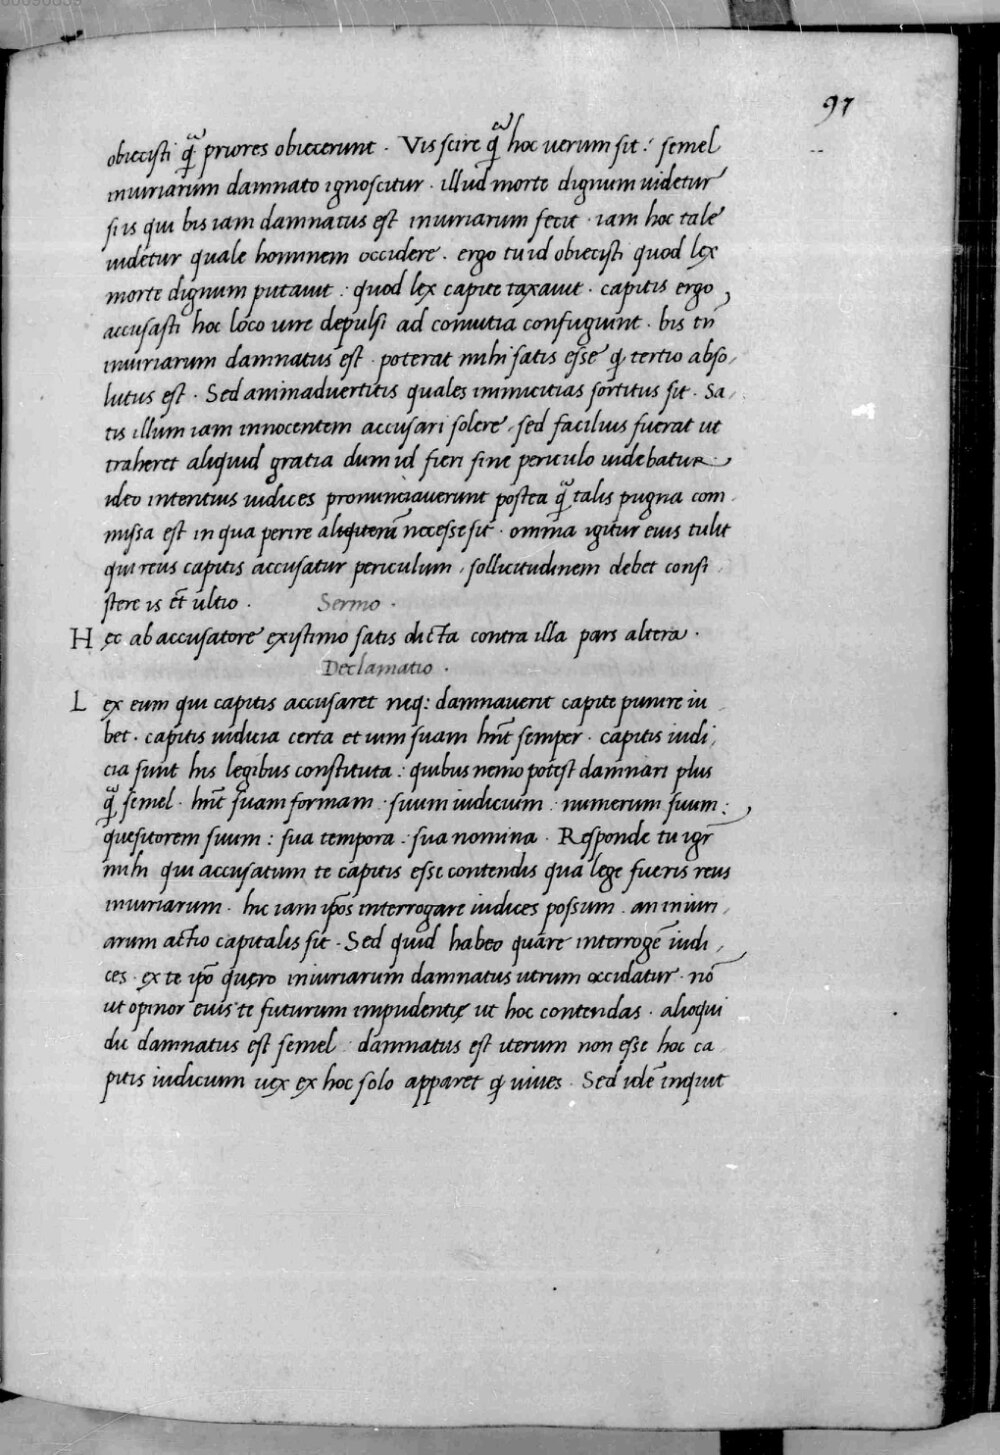 97
obiecisti q̃ priores obiecerunt . Vis scire q̃ hoc uerum sit : semel
iniuriarum damnato ignoscitur . illud morte dignum uidetur
si is qui bis iam damnatus est iniuriarum fecit . iam hoc tale
uidetur quale hominem occidere . ergo tu id obiecisti quod lex
morte dignum putauit : quod lex capite taxauit . capitis ergo
accusasti hoc loco uire depulsi ad conuitia confugiunt . bis tñ
iniuriarum damnatus est . poterat mihi satis esse q̵ tertio abso
lutus est . Sed animaduertitis quales inimicitias sortitus sit . Sa
tis illum iam innocentem accusari solere , sed facilius fuerat ut
traheret aliquid gratia dum id fieri sine periculo uidebatur .
ideo intentius iudices pronunciauerunt postea q̃ talis pugna com
missa est in qua perire aliquterũ necesse sit . omnia igitur eius tulit
qui reus capitis accusatur periculum , sollicitudinem debet consi
stere is et̃ ultio . Sermo .
Hęc ab accusatore existimo satis dicta contra illa pars altera .
Declamatio .
Lex eum qui capitis accusaret neq: damnauerit capite punire iu
bet . capitis iudicia certa et uim suam hñt semper . capitis iudi
cia sunt his legibus constituta : quibus nemo potest damnari plus
q̃ semel . hñt suam formam . suum iudicium . numerum suum :
quesitorem suum : sua tempora . sua nomina . Responde tu igr̃
mihi qui accusatum te capitis esse contendis qua lege fueris reus
iniuriarum . hic iam ip̃os interrogare iudices possum . an iniuri
arum actio capitalis sit . Sed quid habeo quare interrogẽ iudi
ces . ex te ip̃o quęro iniuriarum damnatus utrum occidatur . nõ
ut opinor euis te futurum impudentię ut hoc contendas . alioqui
dic damnatus est semel : damnatus est iterum non esse hoc ca
pitis iudicium uex ex hoc solo apparet q̵ uiues . Sed idẽ inquit